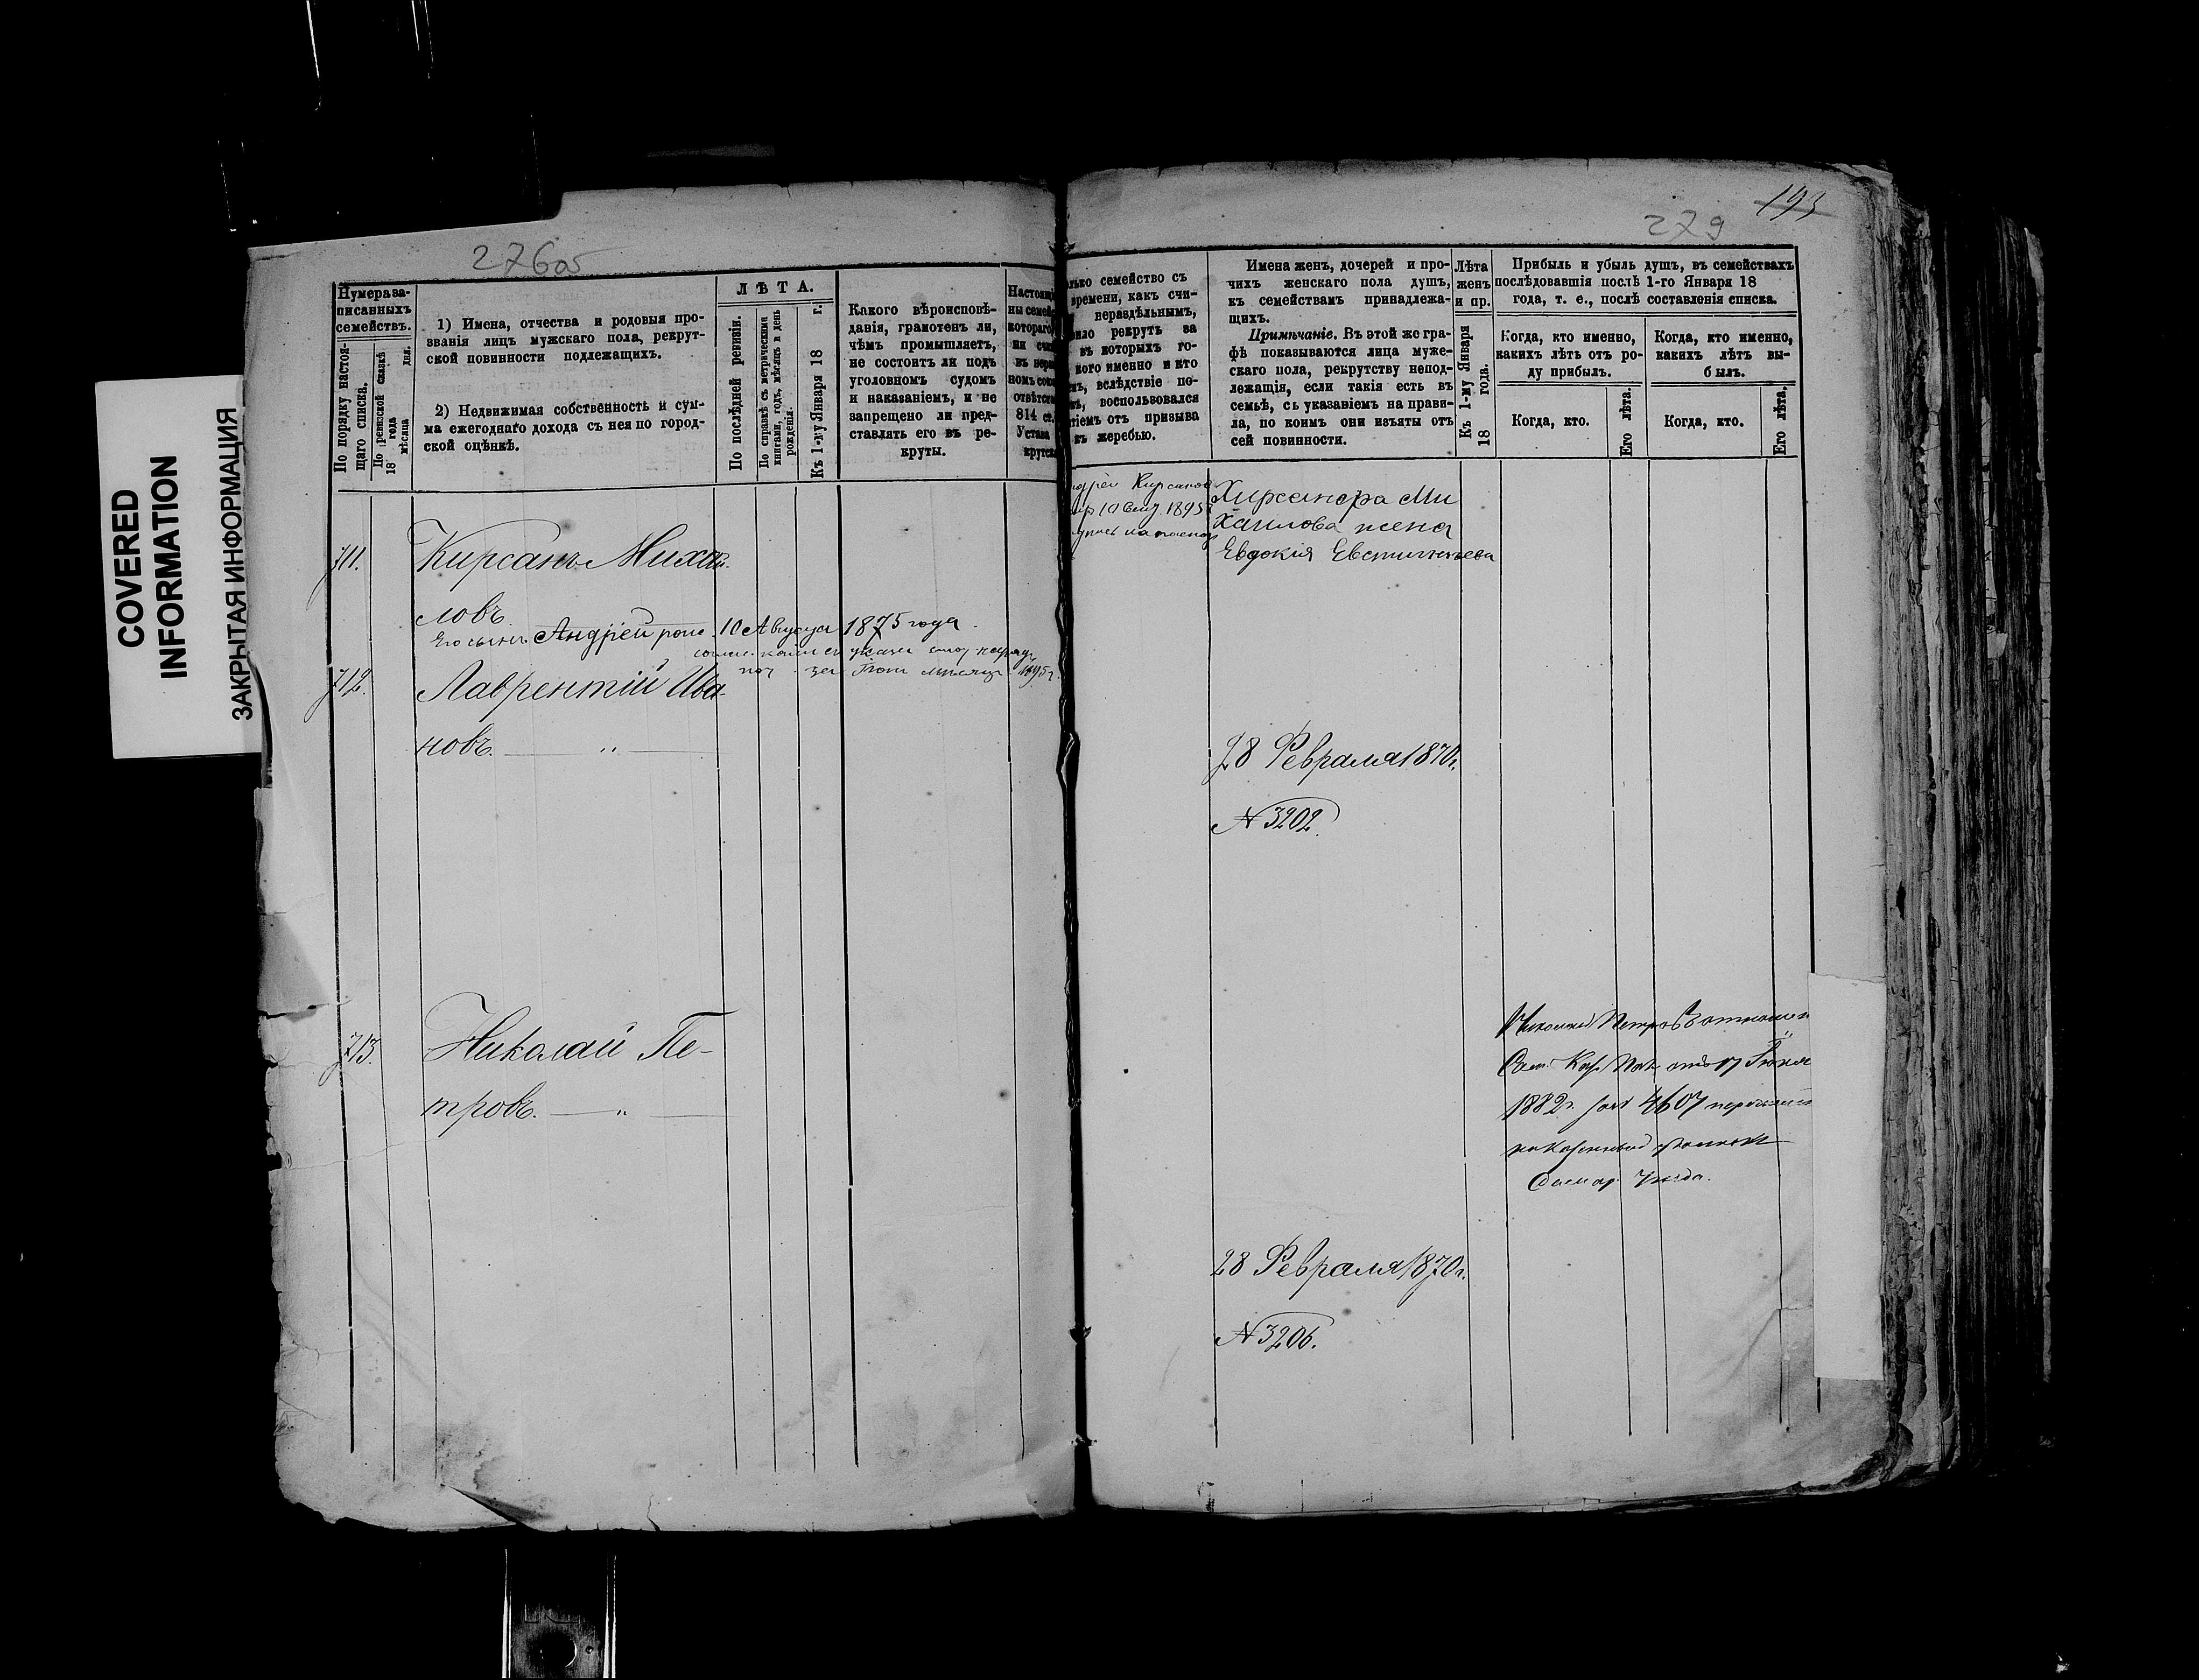 COVERED
INFORMATION
ЗАКРЫТАЯ ИНФОРМАЦИЯ
276об
Нумера за-
писанныхъ
семействъ.
По порядку настоя-
щаго списка.
По ревизской сказкѣ
18 года
мѣсяца дня.
1) Имена, отчества и родовыя про-
званія лицъ мужскаго пола, рекрут-
ской повинности подлежащихъ.
2) Недвижимая собственность и сум-
ма ежегоднаго дохода съ нея по город-
ской оцѣнкѣ.
ЛѢТА.
По послѣдней ревизіи.
По справкѣ съ метрическими
книгами, годъ, мѣсяцъ и день
рожденія.
Къ 1-му Января 18 г.
Какого вѣроисповѣ-
данія, грамотенъ ли,
чѣмъ промышляетъ,
не состоитъ ли подъ
уголовномъ судомъ
и наказаніемъ, и не
запрещено ли пред-
ставлять его въ ре-
круты.
Настоящ
ны семей
котораго
814 ст.
Устава
711.
Кирсанъ Михай-
ловъ.
Его сынъ Андрей род. 10 Августа 1875 года.
712.
Лаврентій Ива-
новъ. — " —
713.
Николай Пе-
тровъ. — " —
193
279
лько семейство съ
времени, какъ счи-
нераздѣльнымъ,
ило рекрутъ за
въ которыхъ го-
кого именно и кто
нъ, вслѣдствіе че-
воспользовался
тіемъ отъ призыва
къ жеребью.
Имена женъ, дочерей и про-
чихъ женскаго пола душъ,
къ семействамъ принадлежа-
щихъ.
Примѣчаніе. Въ этой же гра-
фѣ показываются лица муже-
скаго пола, рекрутству непод-
лежащія, если такія есть въ
семьѣ, съ указаніемъ на прави-
ла, по коимъ они изъяты отъ
сей повинности.
Лѣта
женъ
и пр.
Къ 1-му Января
18 года.
Прибыль и убыль душъ, въ семействахъ
послѣдовавшія послѣ 1-го Января 18
года, т. е., послѣ составленія списка.
Когда, кто именно,
какихъ лѣтъ отъ ро-
ду прибылъ.
Когда, кто именно,
какихъ лѣтъ вы-
былъ.
Когда, кто.
Его лѣта.
Когда, кто.
Его лѣта.
ндрей Кирсанов
Хирсанфа Ми
хаилова жена
Евдокія Евстигнѣева
28 Февраля 1870 г.
№ 3202.
Николай Петровъ
Каз. Пал. отъ 17 Іюня
1882 г. за № 4607
Самар. Уѣзда.
28 Февраля 1870 г.
№ 3206.